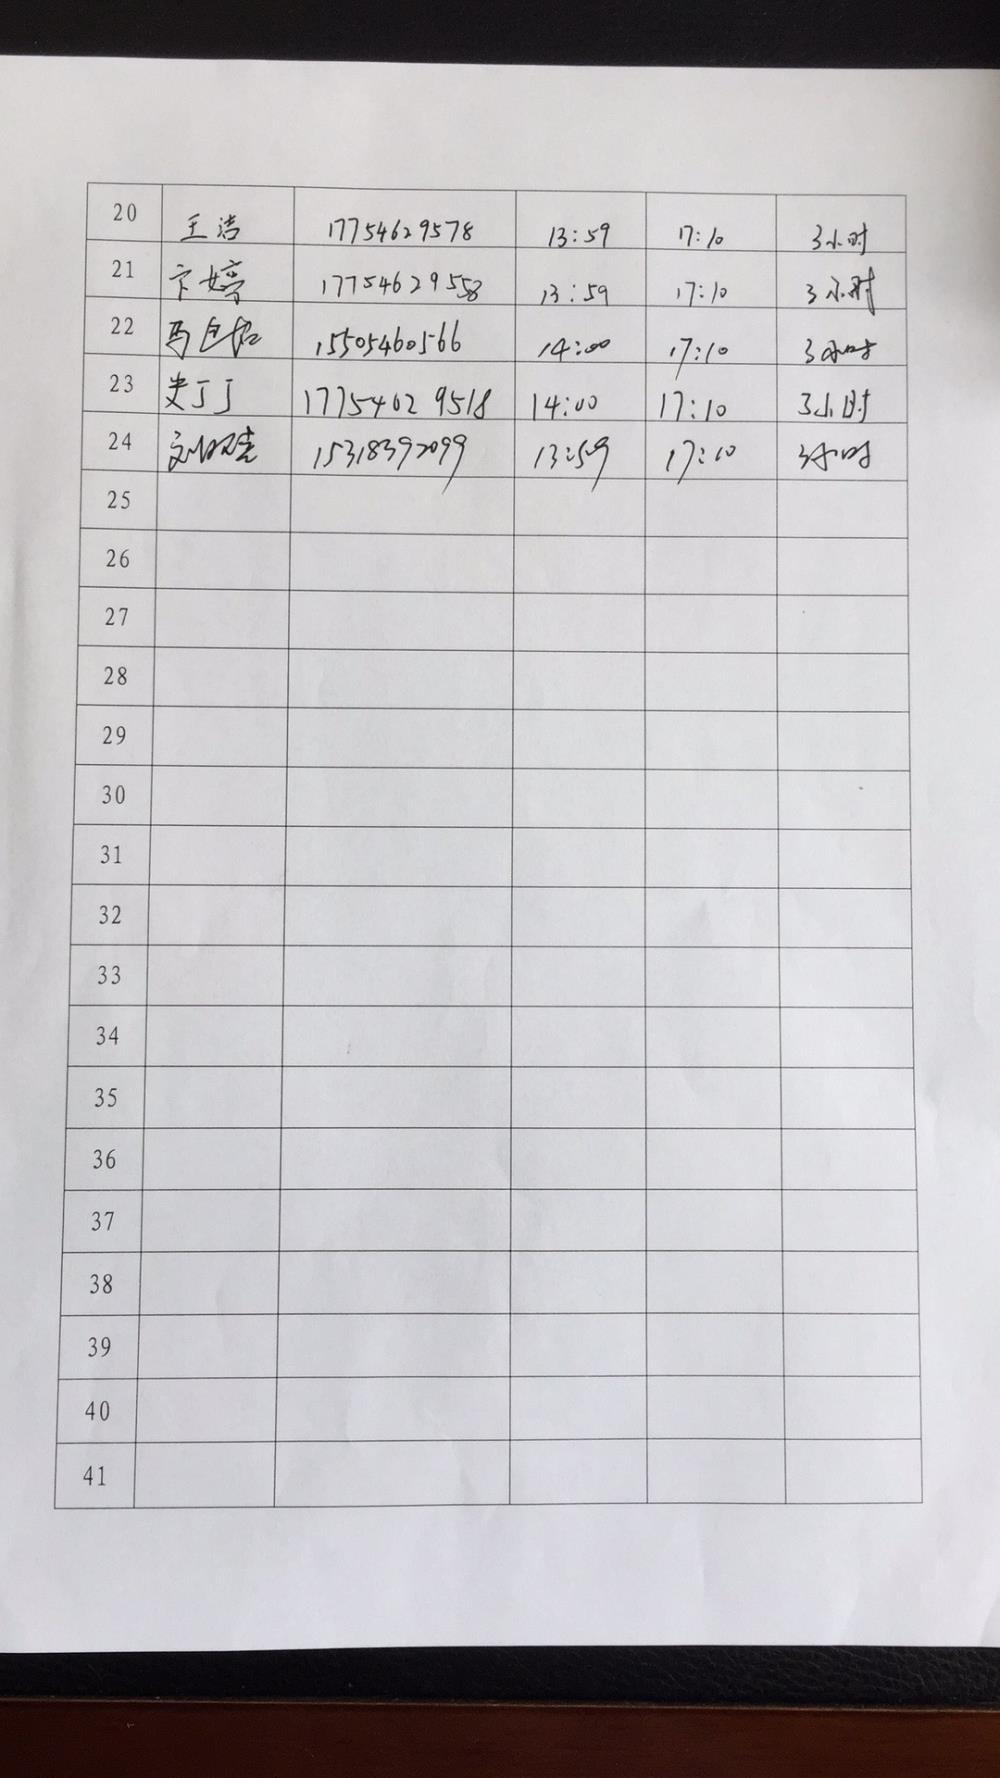 20 王洁 17754629578 13:59 17:10 3小时
21 卞婷 17754629558 13:59 17:10 3小时
22 马 15505460566 14:00 17:10 3小时
23 史丁丁 17754629518 14:00 17:10 3小时
24 刘 15318392099 13:59 17:10 3小时
25
26
27
28
29
30
31
32
33
34
35
36
37
38
39
40
41